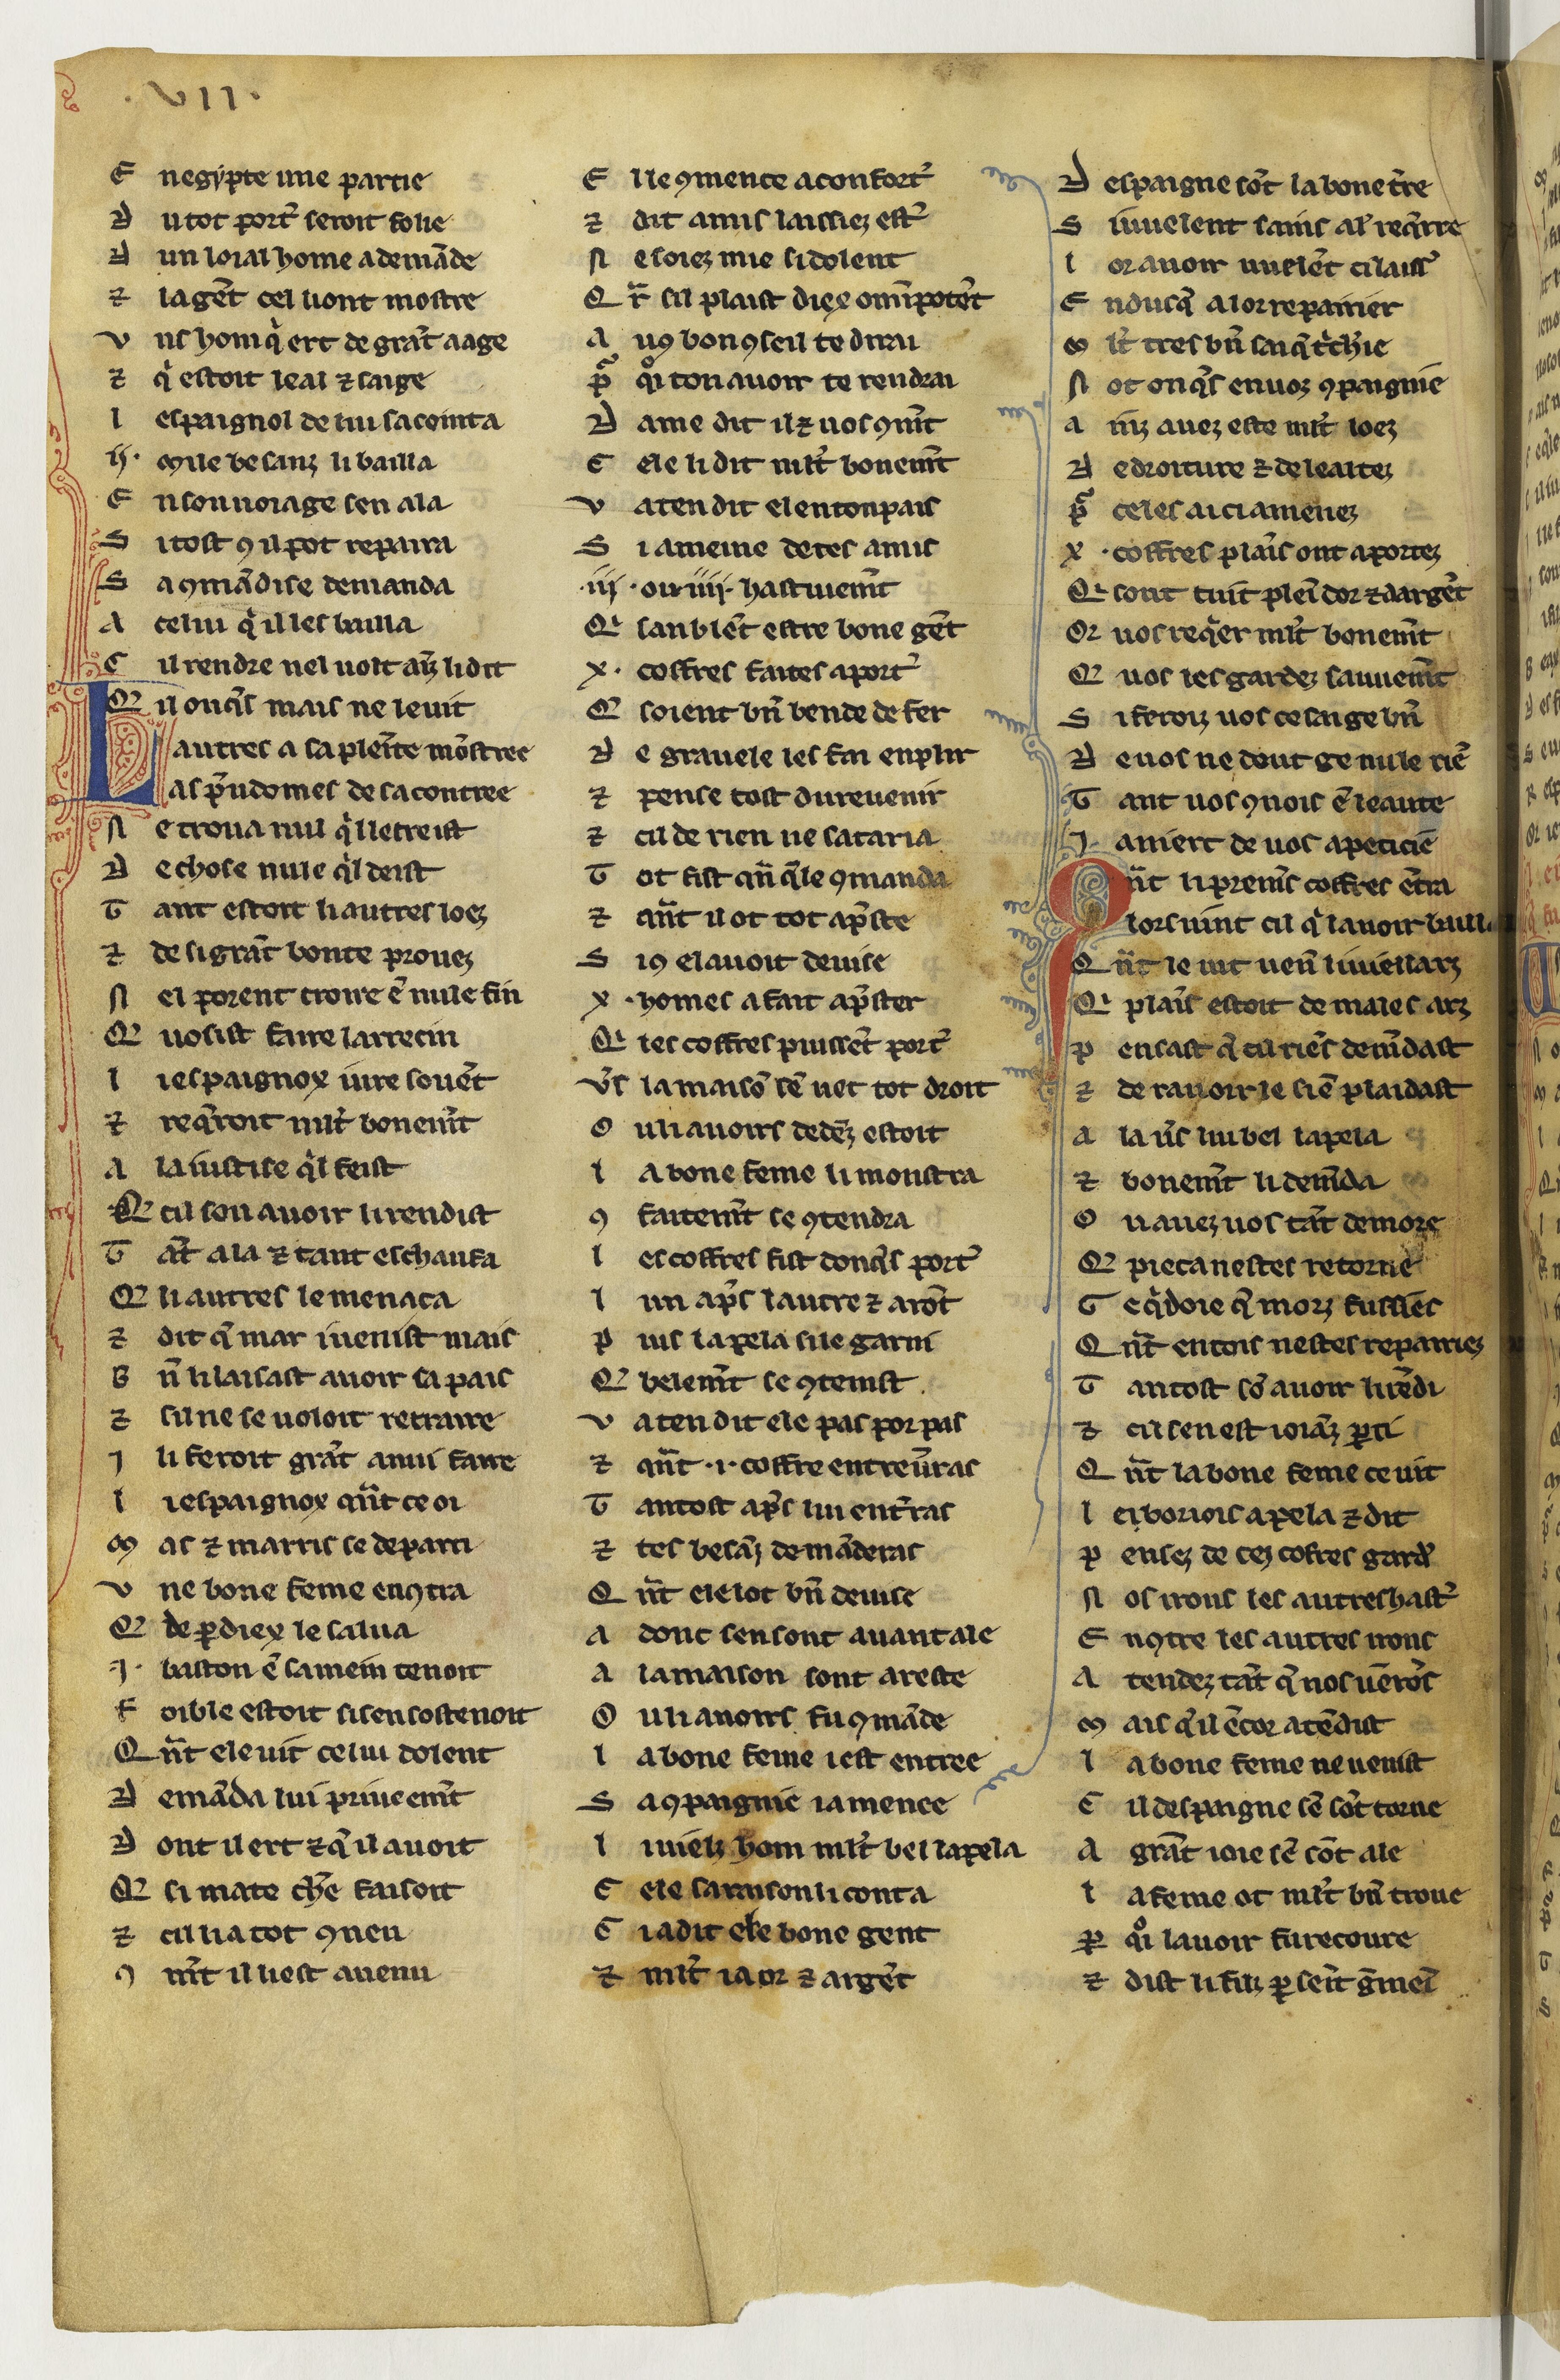 .VII.
E negypte une partie
D u tot port̾ seroit folie
D un loial home a demãde
⁊ la gẽt cel li ont mostre
V ns hom qͥ ert de grãt aage
⁊ qͥ estoit leal ⁊ saige
L espaignol de lui sacointa
ij. mile besanz li bailla
E n son uoiage sen ala
S i tost ꝯ il pot repaira
S a ꝯmãdise demanda
A celui qͥ il les bailla
C il rendre nel uolt ainz li dit
Q il onqͣs mais ne le uit
L autres a sa pleĩte mõstree
as pͤudomes de sa contree
N e troua nul qͥl letreist
D e chose nule qͥl deist
T ant estoit li autres loez
⁊ de si grãt bonte prouez
N el porent croire ẽ nule fin
Q uosist faire larrecin
L i espaignox iure souẽt
⁊ reqͣroit ml̾t bonemt̃
A la iustise qͥl feist
Q cil son auoir li rendist
T ãt ala ⁊ tant eschaufa
Q li autres le menaca
⁊ dit qͥ mar i uenist mais
B ñ li laisast auoir sa pais
⁊ sil ne se uoloit retraire
J li feroit grãt anui faire
L i espaignox qñt ce oi
M as ⁊ marris se departi
V ne bone feme enꝯtra
Q de ꝑ diex le salua
.J. baston ẽ sa mein tenoit
F oible estoit si sen sostenoit
Q ñt ele uit celui dolent
D emãda lui priueemt̃
D ont il ert ⁊ qͥ il auoit
Q si mate chẽ faisoit
⁊ cil li a tot ꝯneu
ꝯ mt̃ il li est auenu
E lle ꝯmence a confort̾
⁊ dit amis laissiez est̾
N e soiez mie si dolent
Q r̃ sil plaist diex omĩpotẽt
A uꝯ bon ꝯseil te dirai
p̃ qͦi ton auoir te rendrai
D ame dit il ⁊ uos ꝯmt̃
E ele li dit ml̾t bonemt̃
V aten dit el en ton pais
S i ameine de tes amis
.iij. ou iiij. hastiuemt̃
Qͥ sanblẽt estre bone gẽt
X. coffres faites aport̾
Q soient bñ bende de fer
D e grauele les fai enplir
⁊ pense tost du reuenir
⁊ cil de rien ne sataria
T ot fist qñ qͣle ꝯmanda
⁊ qñt il ot tot apͣste
S i ꝯ el auoit deuise
X .homes a fait apͣster
Qͥ les coffres puissẽt port̾
v̾s la maisõ sẽ uet tot droit
O u li auoirs dedẽz estoit
L a bone feme li monstra
ꝯ faitemt̃ se ꝯtendra
L es coffres fist donqͣs port̾
L un apͣs lautre ⁊ arõt
P uis lapela si le garni
Q belemt̃ se ꝯtenist
V aten dit ele pas por pas
⁊ qñt .i. coffre entreũras
T antost apͣs lui ent̃ras
⁊ tes besãz demãderas
Q ñt ele lot bñ deuise
A donc sen sont auant ale
A la maison sont areste
O u li auoirs fu ꝯmãde
L a bone feme i est entree
S a ꝯpaignie i a menee
L i uielz hom ml̾t bel lapela
E ele sa raison li conta
C i a dit ele bone gent
⁊ ml̾t i a or ⁊ argẽt
D espaigne sõt la bone t̃re
S il uuelent sains al̾ reqͣrre
L or auoir uuelẽt ci laiss̾
E n dusqͣ a lor repairier
M l̾t tres bñ sai qͥ t̾cherie
N ot onqͣs en uoz ꝯpaignie
A inz auez este ml̾t loez
D e droiture ⁊ de lealtez
p̃ ce les ai ci amenez
X .coffres plaĩs ont aportez
Qͥ sont tuit pleĩ dor ⁊ dargẽt
Or uos reqͥer ml̾t bonemt̃
Q uos les gardez sauuemt̃
S i feroiz uos ce sai ge bñ
D e uos ne dout ge nule riẽ
T ant uos ꝯnois ẽ leaute
J. a niert de uos apeticiẽ
Q ñt li premi̾s coffres ẽtra
lors uint cil qͥ lauoir bailla
Q ñt le uit uenĩ li uiellarz
Qͥ plaĩs estoit de males arz
P ensast qͥ cil riẽs demãdast
⁊ de rauoir le siẽ plaidast
A la ũs lui bel lapela
⁊ bonemt̃ li demãda
O u auez uos tãt demore
Q pieca nestes retorne
T e qͥdoie qͥ morz fussies
Q ñt encois nestes repairiez
T antost sõ auoir li rẽdi
⁊ cil sen est ioiãz ꝑti
Q ñt la bone feme ce uit
L ei boriois apela ⁊ dit
P ensez de cez coffres gard̾
N os irons les autres hast̾
E nꝯtre les autres irons
A tendez tãt qͥ nos uẽrõs
M ais qͥ il ẽcor atẽdist
L a bone feme ne uenist
C il despaigne sẽ sõt torne
A grãt ioie sẽ sõt ale
L a feme ot ml̾t bñ troue
P ꝑ qͦi lauoir fu recoure
⁊ dist li filz ꝑ seĩt g̃meĩ